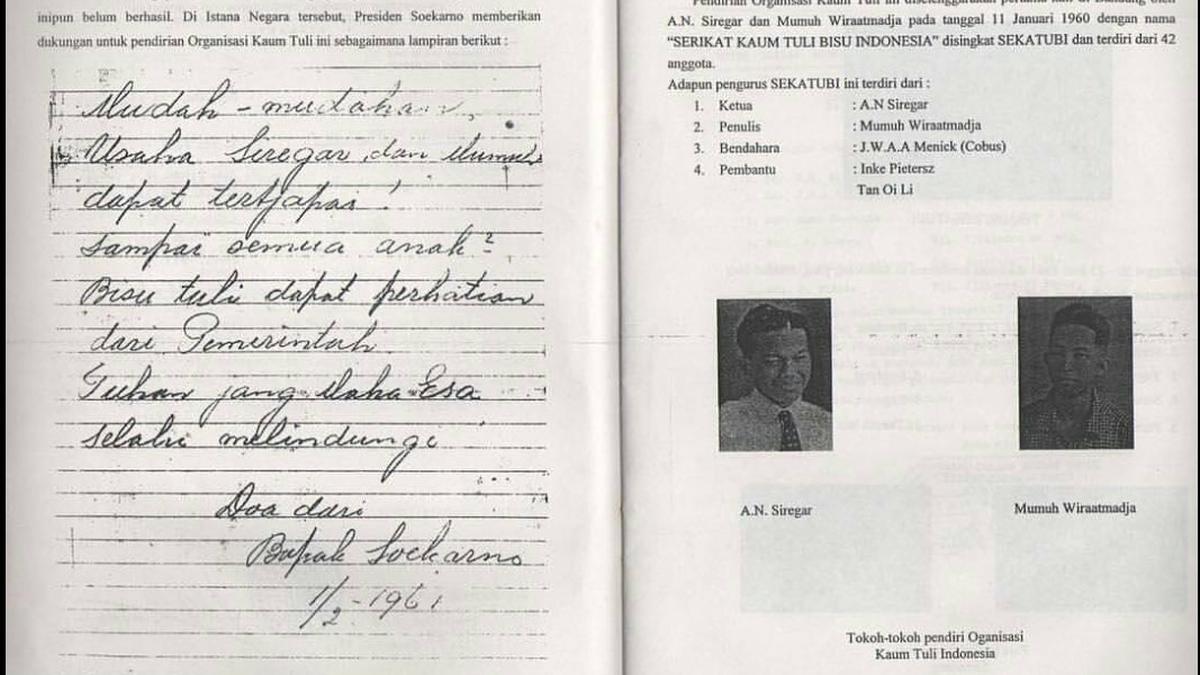 inipun belum berhasil. Di Istana Negara tersebut, Presiden Soekarno memberikan
dukungan untuk pendirian Organisasi Kaum Tuli ini sebagaimana lampiran berikut :
Mudah - mudahan,
Usaha Siregar dan Mumuh
dapat tertjapai !
Sampai semua anak 2
Bisu tuli dapat perhatian
dari Pemerintah
Tuhan jang Maha Esa
selalu melindungi
Doa dari
Bapak Soekarno
1/2 - 1961
A.N. Siregar dan Mumuh Wiraatmadja pada tanggal 11 Januari 1960 dengan nama
“SERIKAT KAUM TULI BISU INDONESIA” disingkat SEKATUBI dan terdiri dari 42
anggota.
Adapun pengurus SEKATUBI ini terdiri dari :
1. Ketua : A.N Siregar
2. Penulis : Mumuh Wiraatmadja
3. Bendahara : J.W.A.A Menick (Cobus)
4. Pembantu : Inke Pietersz
Tan Oi Li
A.N. Siregar
Mumuh Wiraatmadja
Tokoh-tokoh pendiri Oganisasi
Kaum Tuli Indonesia